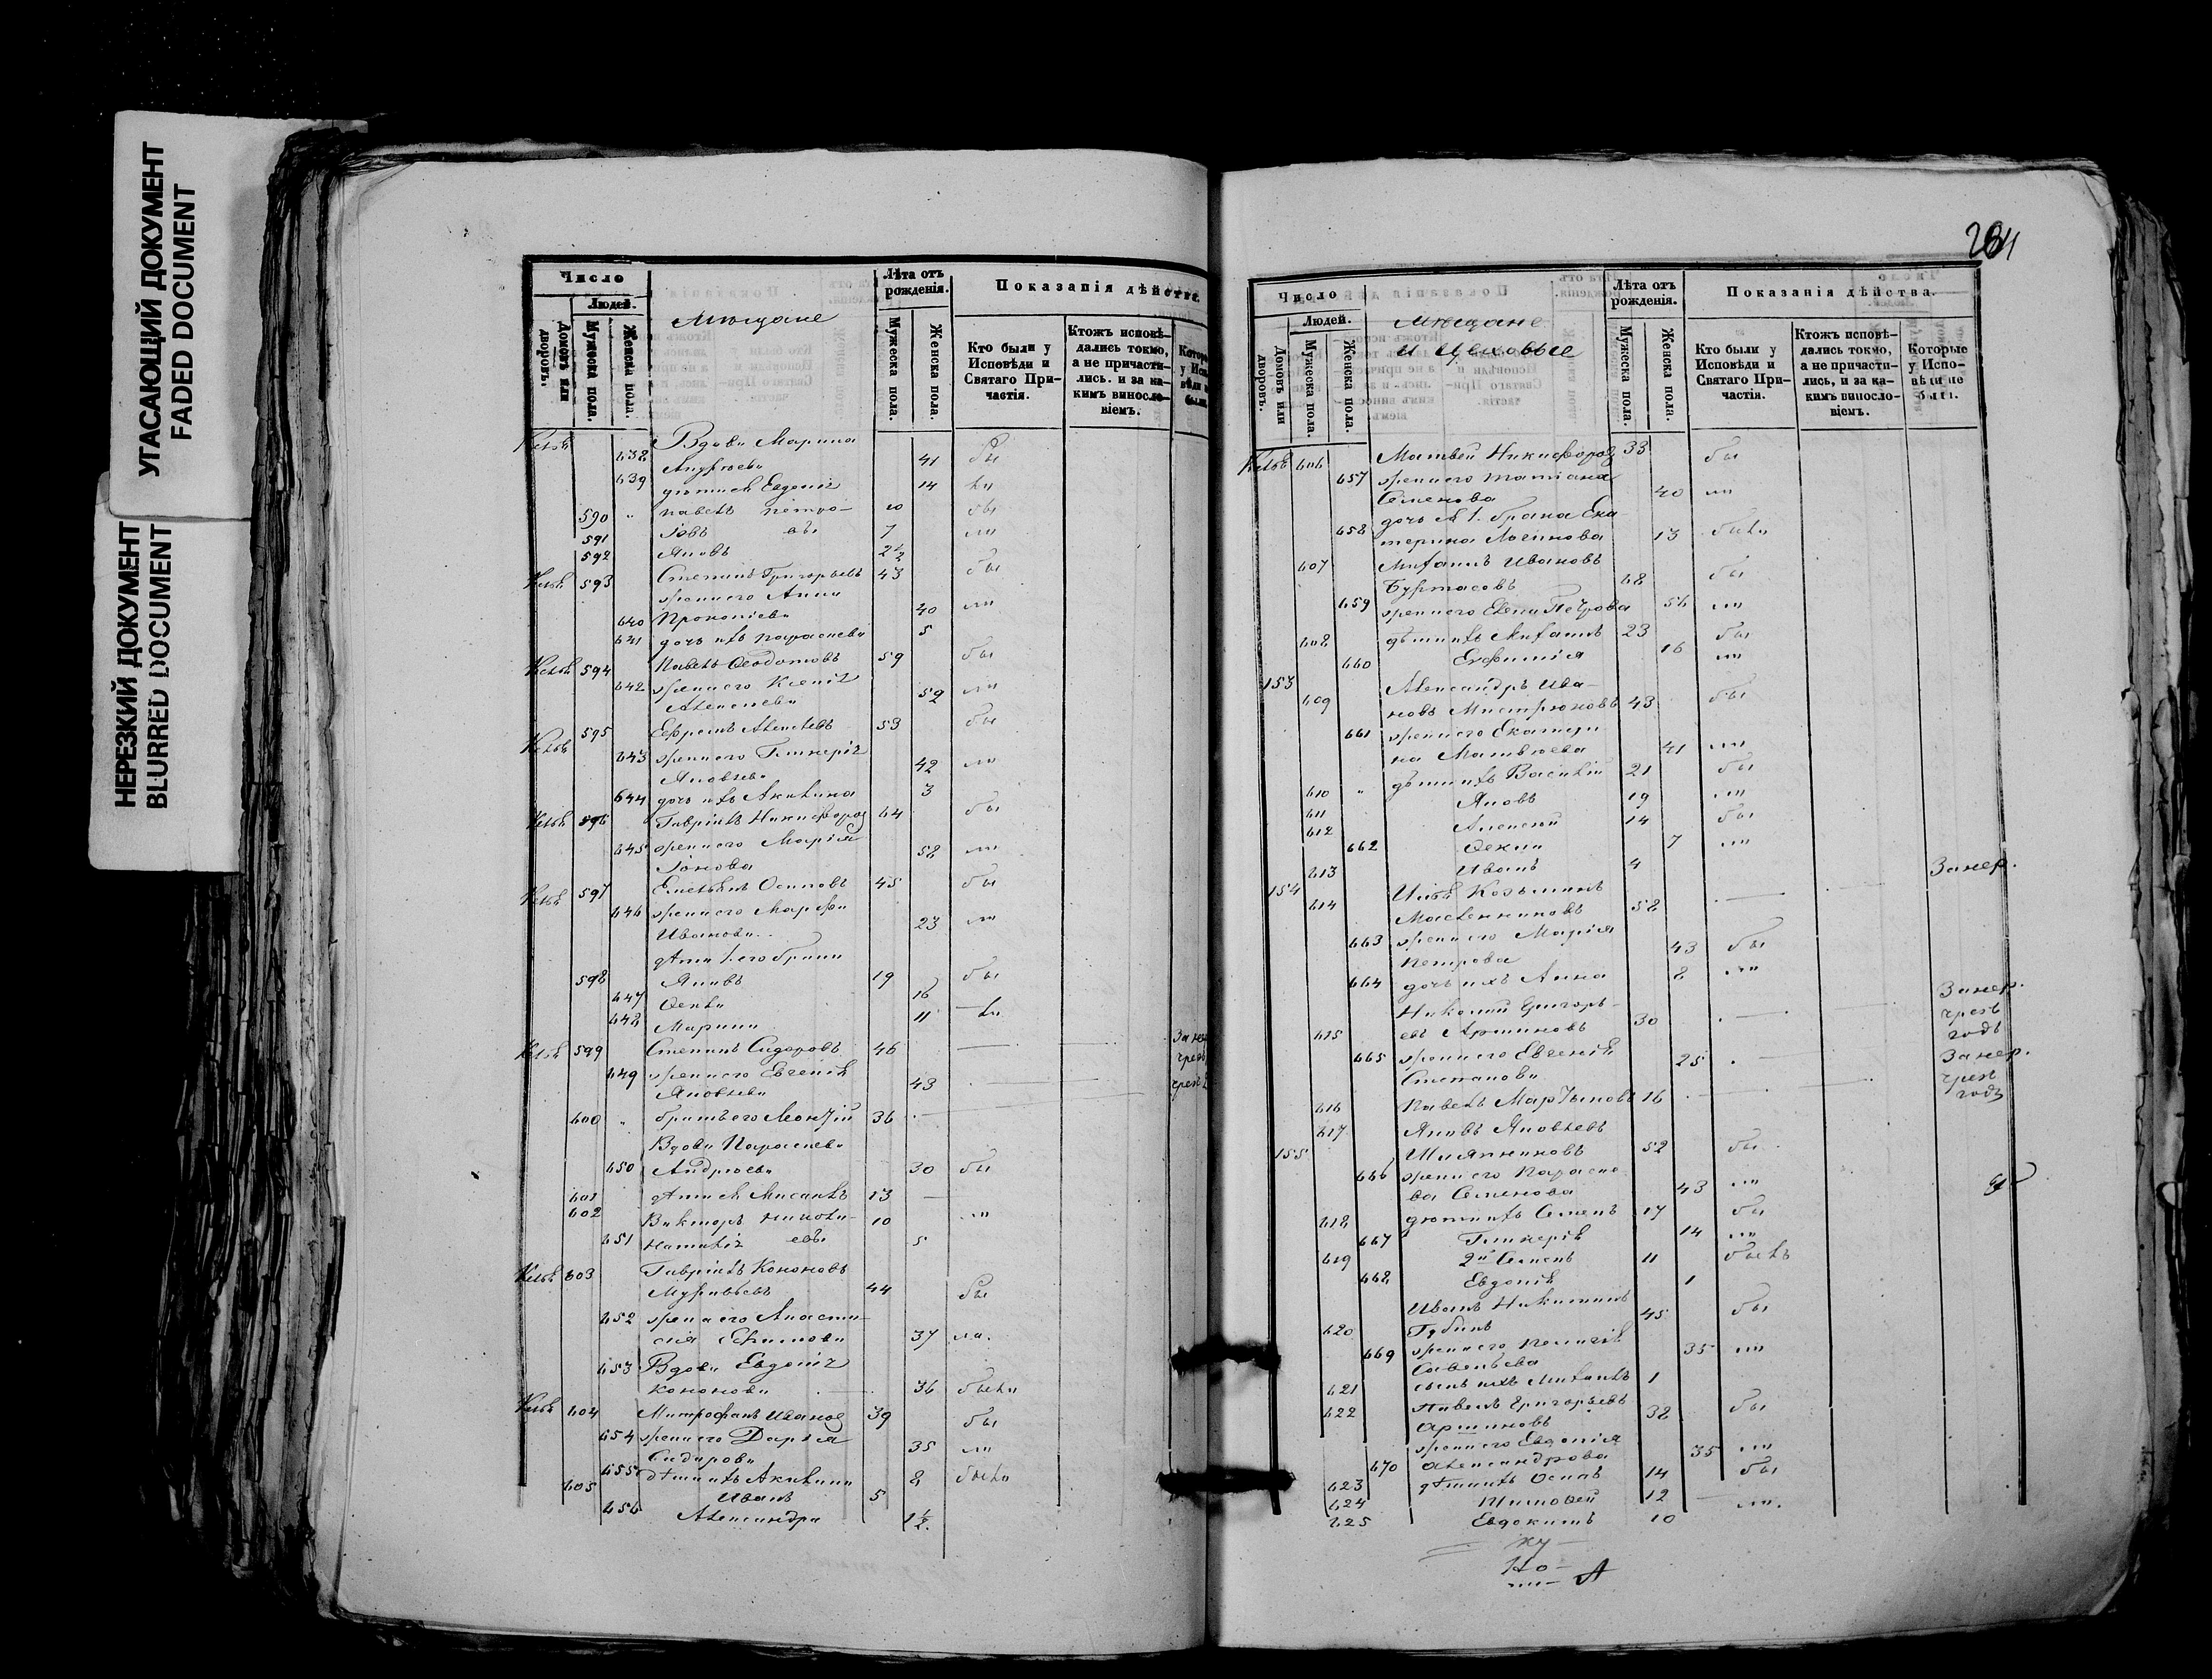 УГАСАЮЩИЙ ДОКУМЕНТ
FADED DOCUMENT
НЕРЕЗКИЙ ДОКУМЕНТ
BLURRED DOCUMENT
Число
Людей.
Домовъ или дворовъ.
Мужеска пола.
Женска пола.
Мѣщане
Лѣта отъ рожденія.
Мужеска пола.
Женска пола.
Показанія дѣйства.
Кто были у Исповѣди и Святаго Причастія.
Ктожъ исповѣдались токмо, а не причастились. и за какимъ винословіемъ.
638 Вдова Марина
Андреева 41 бы
639 14 ла
590 Павелъ Петро- 10 бы
591 Іовъ вы 7
592 Яковъ 2½
593 Степанъ Григорьевъ 43 бы
жена его Анна
640 Прокопіева 40 ла
641 дочь ихъ Параскева 5
594 Павелъ Ѳеодотовъ 59 бы
642 жена его Ксенія
Алексеева 59 ла
595 Ефремъ Алексеевъ 53 бы
643 жена его Гликерія
Яковлева 42 ла
644 дочь ихъ Акилина 3
596 Гавріилъ Никифоров 64 бы
645 жена его Марія
Іонова 58 ла
597 Емельянъ Осиповъ 45 бы
646 жена его Марфа
Иванова 23 ла
598 Яковъ 19 бы
647 16
648 Марина 11 ла
599 Степанъ Сидоровъ 46
649 жена его Евгенія
Яковлева 43
600 братъ его Леонтій 36
Вдова Параскева
650 Андреева 30 бы
601 13
602 Викторъ 10
651 Наталія 5
603 Гавріилъ Кононовъ
Муравьевъ 44 бы
652 жена его Анаста-
сія Ефимова 37 ла
653 Вдова Евдокія
Кононова 36 была
604 Митрофанъ Иванов 39 бы
654 жена его Дарія
Сидорова 35 ла
655 дѣти ихъ Акилина 8 была
605 Иванъ 5
656 Александра 1½.
Число
Людей.
Домовъ или дворовъ.
Мужеска пола.
Женска пола.
Мѣщане
и Цеховые
Лѣта отъ рожденія.
Мужеска пола.
Женска пола.
Показанія дѣйства.
Кто были у Исповѣди и Святаго Причастія.
Ктожъ исповѣдались токмо, а не причастились, и за какимъ винословіемъ.
Которые у Исповѣди не были.
606 Матвей Никифоров 33 бы
657 жена его Татіана
Семенова 40 ли
дочь 1. брака Ека-
658 терина Логинова 13 была
607 Михаилъ Ивановъ
Буртасовъ 68 бы
659 жена его Елена Петрова 56 ли
608 дѣти ихъ Михаилъ 23 бы
660 Евфимія 16 ли
153 Александръ Ива-
609 новъ Мистрюковъ 43 бы
661 жена его Екатери
на Матвеева 41 ли
610 дѣти ихъ Василій 21 бы
611 Яковъ 19 ли
612 Алексей 14 бы
662 Ѳекла 7 ли
613 Иванъ 4
154 Илья Козьминъ Занер.
614 Масленниковъ 58
663 жена его Марія
Петрова 43 бы
664 дочь ихъ Анна 8 ли
Николай Григорь- Занер.
615 евъ Аршиновъ 30 чрезъ годъ
665 жена его Евгенія Занер.
Степанова 25 чрезъ годъ
616 Павелъ Мартыновъ 16
617 Яковъ Яковлевъ
155 Шляпниковъ 52 бы
666 жена его Параске
ва Семенова 43 ли
618 дѣти ихъ Семенъ 17 бы
667 Гликерія 14 ли
619 2й Семенъ 11 былъ
668 Евдокія 1
Иванъ Никитинъ
620 Губинъ 45 бы
669 жена его Пелагія
Савельева 35 ли
621 сынъ ихъ Михаилъ 1
622 Павелъ Григорьевъ
Аршиновъ 38 бы
жена его Евдокія
670 Александрова 35 ли
623 дѣти ихъ Осипъ 14 бы
624 Тимоѳей 12 ли
625 Евдокимъ 10